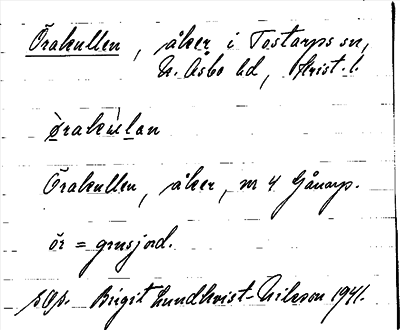 Örakullen, åker i Tostarps sn,
N. Åsbo hd, Krist. l.
ørakulan
Örakullen, åker, nr 4 Gånarp.
ör = grusjord.
Birgit Lundkvist-Nilsson 1941.